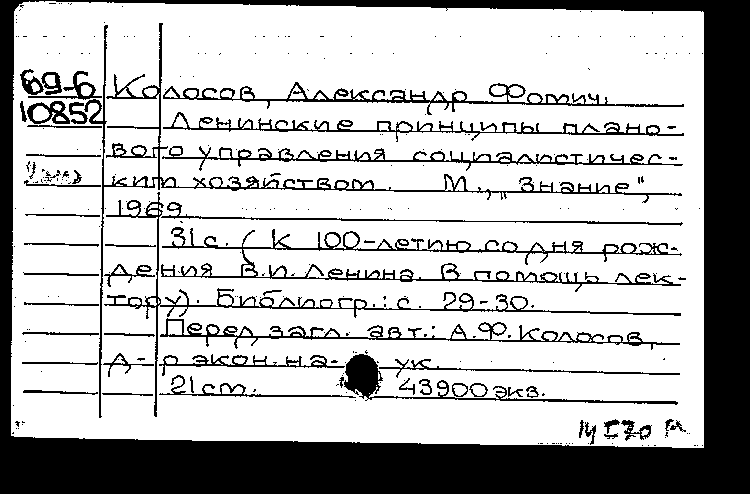 69-6 Колосов, Александр Фомич.
10852 Ленинские принципы плано-
вого управления социалистичес-
ким хозяйством. М., „Знание",
1969.
31 с. (К 100-летию со дня рож-
дения В.И. Ленина. В помощь лек-
тору). Библиогр.: с. 29-30.
Перед загл. авт.: А.Ф. Колосов,
д-р экон. на- ук.
21 см. 43900 экз.